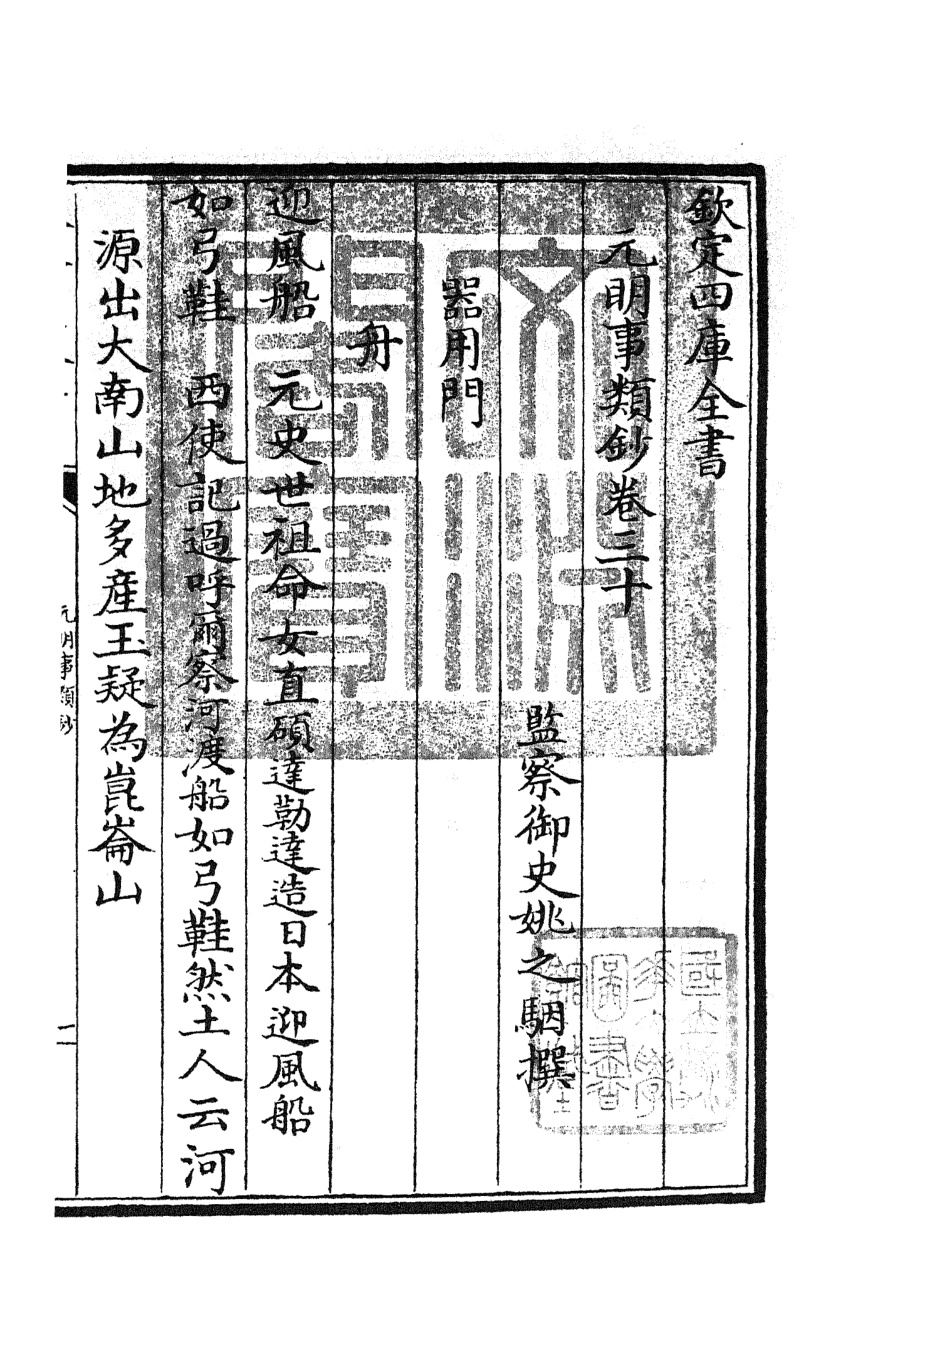 欽定四庫全書
元明事類鈔卷三十
監察御史姚之駰撰
器用門
舟
迎風船　元史世祖命女直碩達勒達造日本迎風船
如弓鞋　西使記過呼爾察河渡船如弓鞋然土人云河
源出大南山地多産玉疑為崑崙山
元明事類鈔